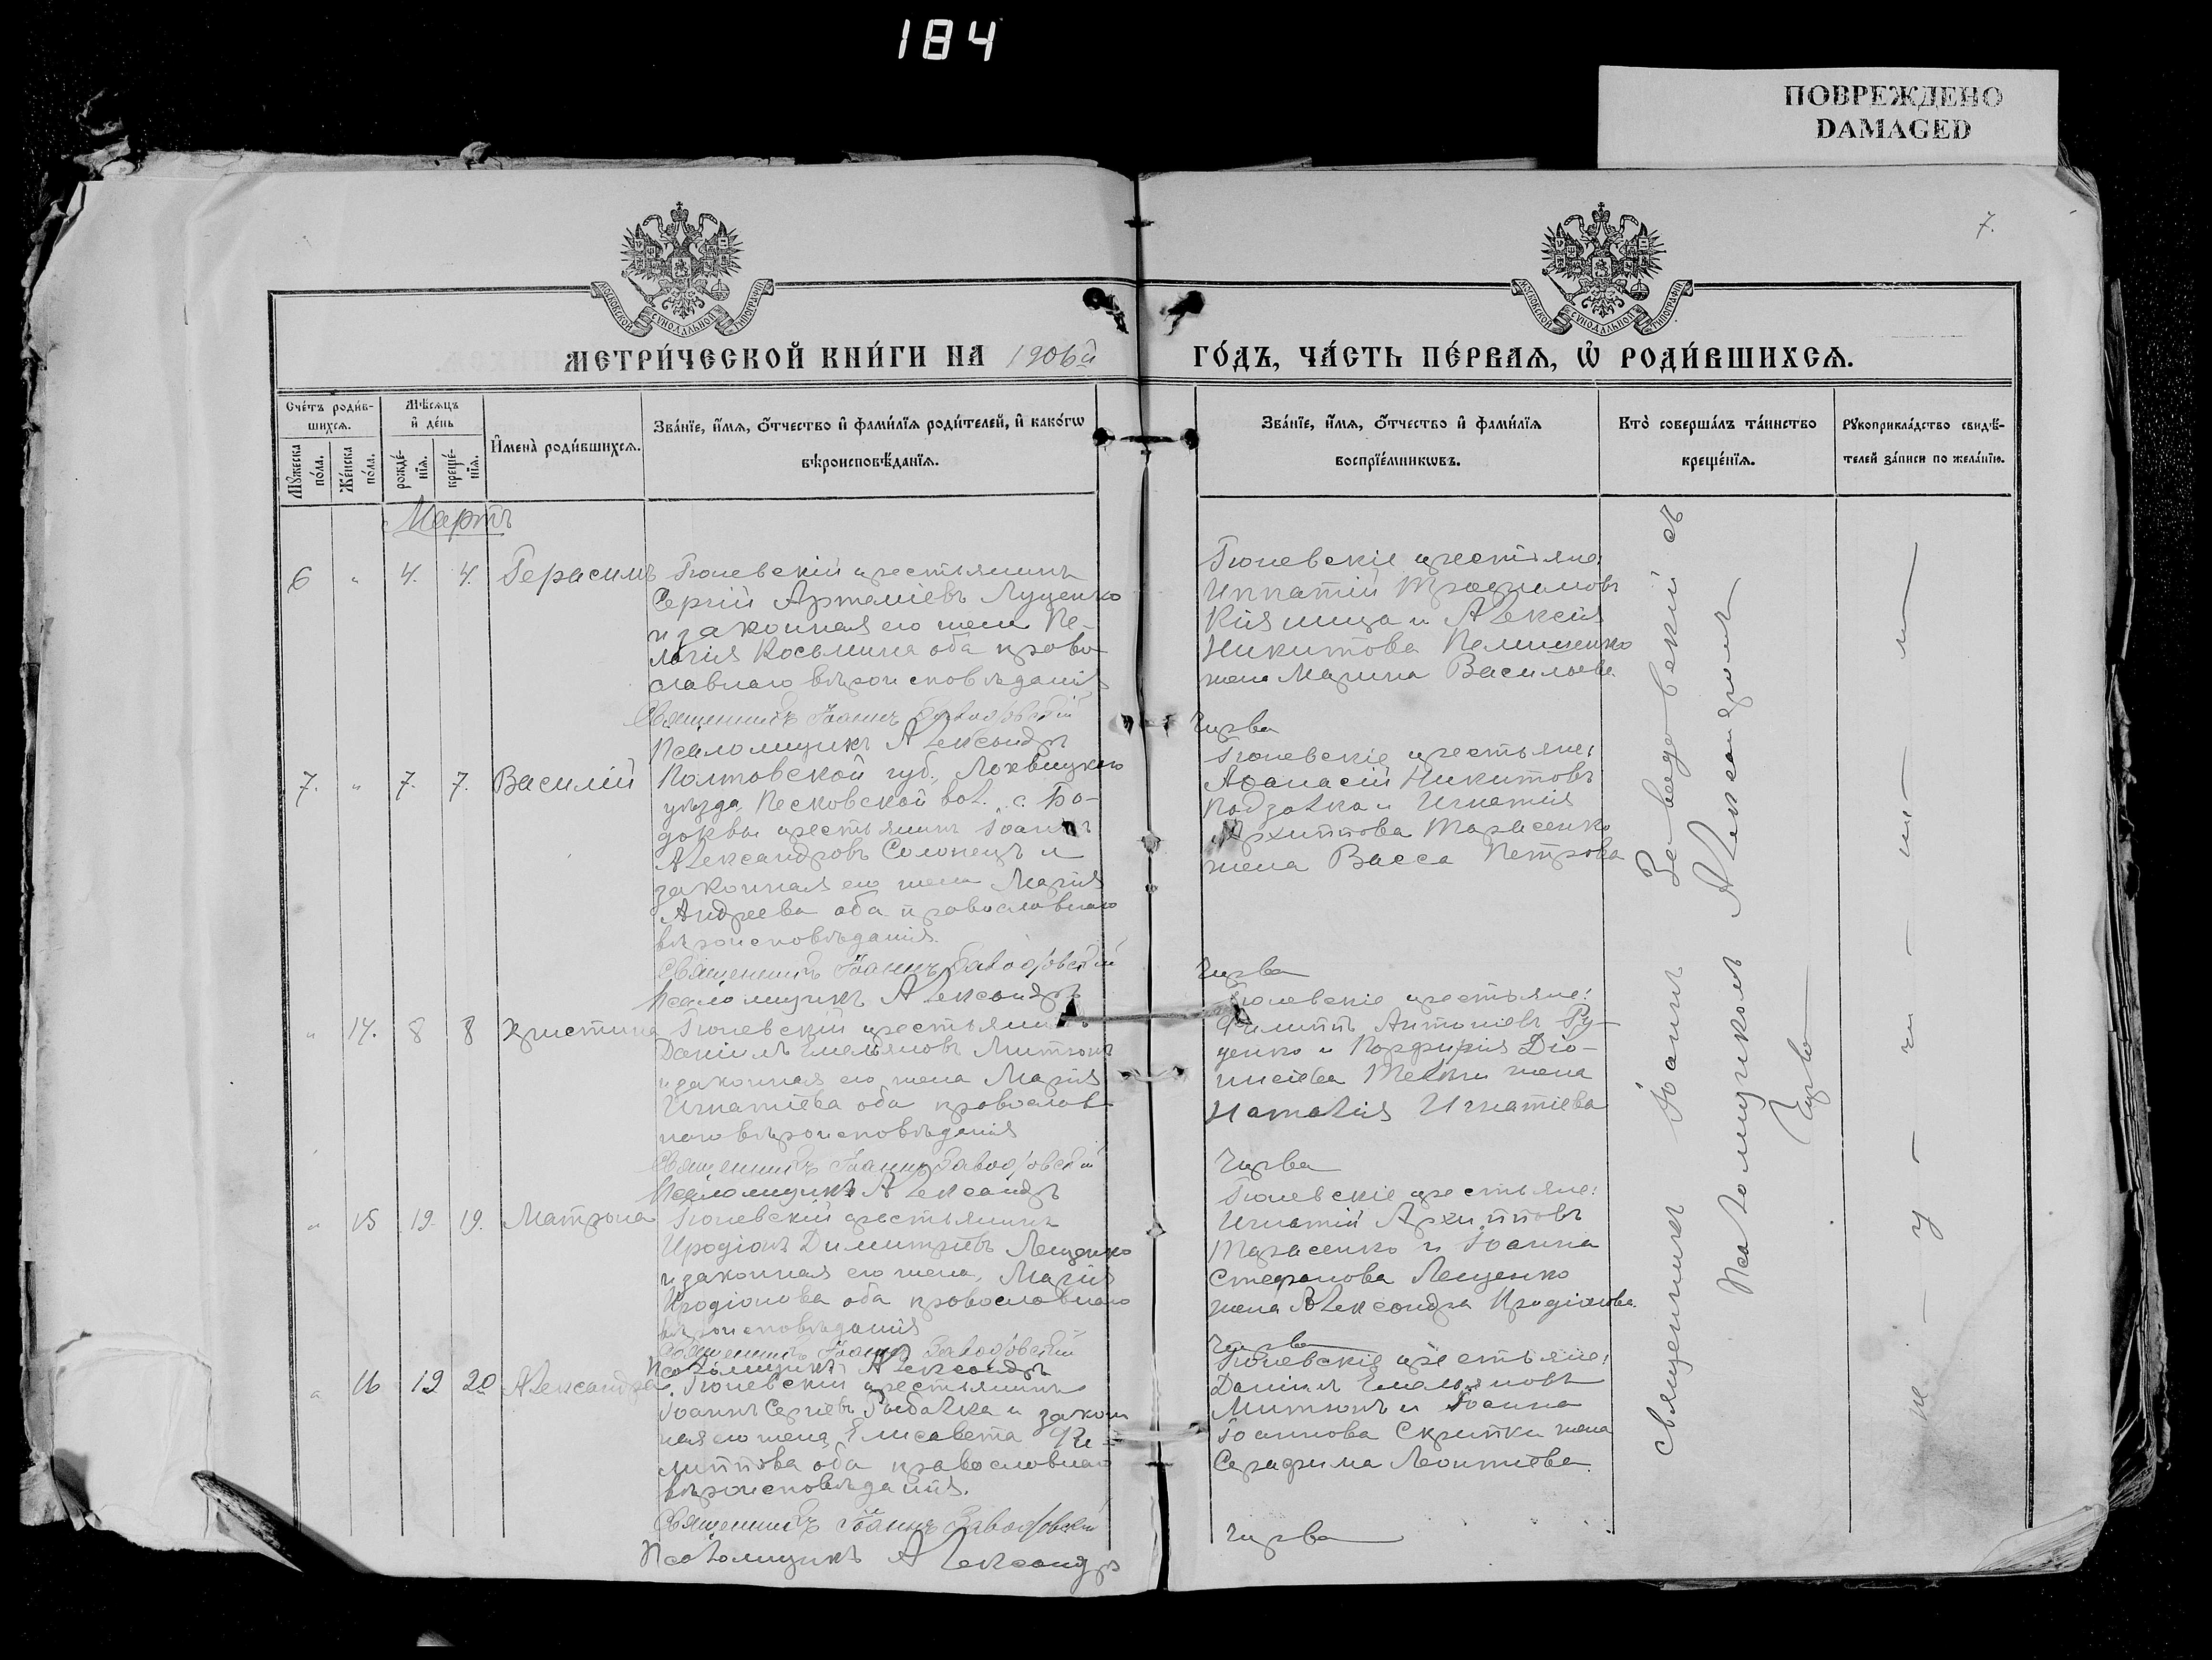 184
ПОВРЕЖДЕНО
DAMAGED
7.
МОСКОВСКОЙ СУНОДАЛЬНОЙ ТИПОГРАФІИ
МОСКОВСКОЙ СУНОДАЛЬНОЙ ТИПОГРАФІИ
МЕТРИ́ЧЕСКОЙ КНИ́ГИ НА 1906й
ГО́ДЪ, ЧА́СТЬ ПЕ́РВАЯ, Ѡ҆ РОДИ́ВШИХСЯ.
Сче́тъ роди́вшихся.
Му́жеска по́ла.
Же́нска по́ла.
Мѣ́сяцъ и҆ де́нь
рожде́нїя.
креще́нїя.
И҆мена̀ роди́вшихся.
Зва́нїе, и҆́мя, ѻ҆́тчество и҆ фами́лїя роди́телей, и҆ како́гѡ
вѣроисповѣ́данїя.
Зва́нїе, и҆́мя, ѻ҆́тчество и҆ фами́лїя
воспрїе́мникѡвъ.
Кто̀ соверша́лъ та́инство
креще́нїя.
Рꙋкоприкла́дство свидѣ́-
телей за́писи по жела́нїю.
Мартъ
6 " 4. 4. Герасимъ
Гюневскій крестьянинъ
Сергій Артеміевъ Луценко
и законная его жена Пе-
лагія Косьмина оба право
славнаго вѣроисповѣданія
Священникъ Іоаннъ Заводовскій
Псаломщикъ Александръ
Гюневскіе крестьяне
Ипатій Трофимовъ
Кіяница и Алексія
Никитова
жена Марина Васильева
Чирва
7. " 7. 7. Василій
Полтавской губ., Лохвицкаго
уѣзда Песковской вол. с. Бо-
доквы крестьянинъ Іоаннъ
Александровъ Солонецъ и
законная его жена Марія
Андреева оба православнаго
вѣроисповѣданія.
Священникъ Іоаннъ Заводовскій
Псаломщикъ Александръ
Гюневскіе крестьяне:
Афанасій Никитовъ
и Игнатія
Архиппова Тарасенко
жена Васса Петрова
Чирва
" 14. 8 8 Христина
Гюневскій крестьянинъ
Даніилъ Емельяновъ Митюнъ
и законная его жена Марія
Игнатіева оба православ
наго вѣроисповѣданія
Священникъ Іоаннъ Заводовскій
Псаломщикъ Александръ
Гюневскіе крестьяне:
Филиппъ Антоніевъ Ру-
денко и Порфирія Діо-
нисіева жена
Наталія Игнатіева
Чирва
" 15 19. 19. Матрона
Гюневскій крестьянинъ
Иродіонъ Димитріевъ Лещенко
и законная его жена, Марія
Иродіонова оба православнаго
вѣроисповѣданія
Священникъ Іоаннъ Заводовскій
Псаломщикъ Александръ
Гюневскіе крестьяне:
Игнатій Архипповъ
Тарасенко и Іоанна
Стефанова Лещенко
жена Александра Иродіонова.
Чирва
" 16 19 20 Александра
Гюневскій крестьянинъ
Іоаннъ Сергіевъ Рыбалка и закон
ная его жена Елисавета Фи-
липпова оба православнаго
вѣроисповѣданія.
Священникъ Іоаннъ Заводовскій
Псаломщикъ Александръ
Гюневскіе крестьяне:
Даніилъ Емельяновъ
Митюнъ и Іоанна
Іоаннова Скрипки жена
Серафима Леонтіева.
Чирва
Священникъ Іоаннъ Заводовскій съ
Псаломщикомъ Александромъ
Чирво